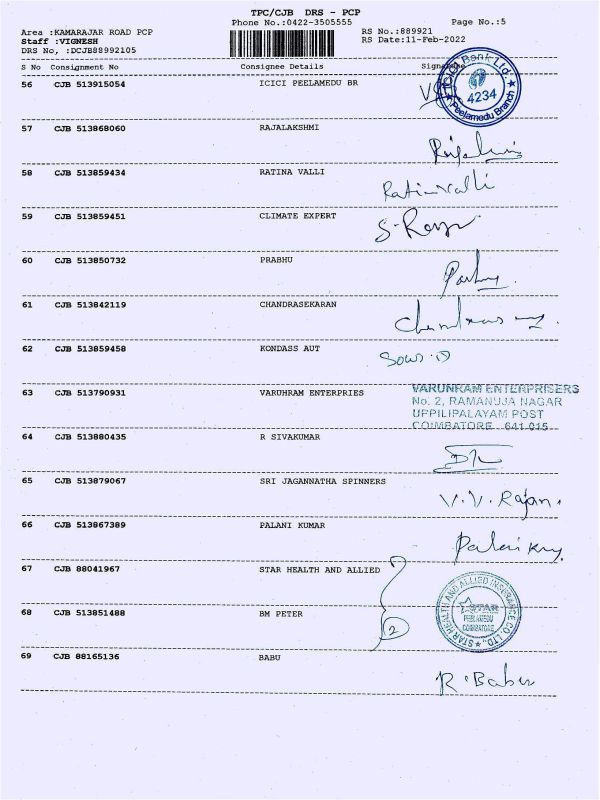 TPC/CJB DRS - PCP
Phone No.:0422-3505555
Page No.:5
Area :KAMARAJAR ROAD PCP
Staff :VIGNESH
DRS No, :DCJB88992105
RS No.:889921
RS Date:11-Feb-2022
S No Consignment No Consignee Details Signature
56 CJB 513915054 ICICI PEELAMEDU BR
Bank Ltd.
4234
Peelamedu Branch
57 CJB 513868060 RAJALAKSHMI
58 CJB 513859434 RATINA VALLI
Ratinavalli
59 CJB 513859451 CLIMATE EXPERT
60 CJB 513850732 PRABHU
61 CJB 513842119 CHANDRASEKARAN
62 CJB 513859458 KONDASS AUT
63 CJB 513790931 VARUHRAM ENTERPRIES
VARUNRAM ENTERPRISERS
No. 2, RAMANUJA NAGAR
UPPILIPALAYAM POST
COIMBATORE 641 015
64 CJB 513880435 R SIVAKUMAR
65 CJB 513879067 SRI JAGANNATHA SPINNERS
V. V. Rajan.
66 CJB 513867389 PALANI KUMAR
67 CJB 88041967 STAR HEALTH AND ALLIED
STAR HEALTH AND ALLIED INSURANCE CO. LTD.
STAR
PEELAMEDU
COIMBATORE
68 CJB 513851488 BM PETER
2
69 CJB 88165136 BABU
R. Babu